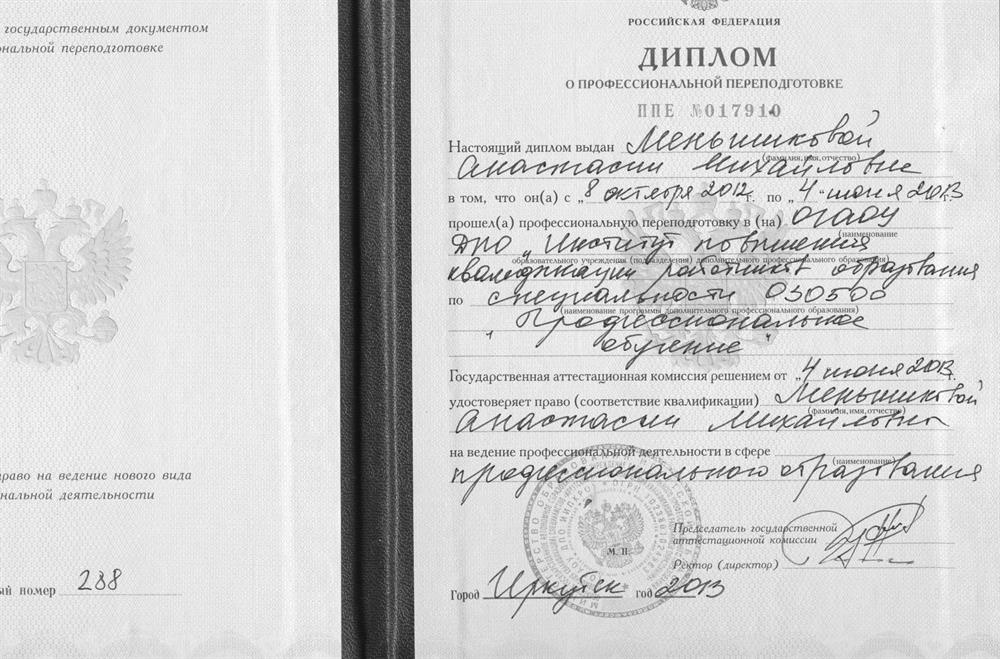 государственным документом
ональной переподготовке
раво на ведение нового вида
нальной деятельности
ый номер 238
РОССИЙСКАЯ ФЕДЕРАЦИЯ
ДИПЛОМ
О ПРОФЕССИОНАЛЬНОЙ ПЕРЕПОДГОТОВКЕ
ППЕ №017910
Настоящий диплом выдан Меньшиковой
(фамилия, имя, отчество)
Анастасии Михайловне
в том, что он(а) с „8 октября 2012г. по „4" июня 2013г.
прошел(а) профессиональную переподготовку в (на) ОГАОУ
(наименование
ДПО „Институт повышения
образовательного учреждения (подразделения) дополнительного профессионального образования)
квалификации работников образования
по специальности 030500
(наименование программы дополнительного профессионального образования)
"Профессиональное
обучение"
Государственная аттестационная комиссия решением от „4 июня 2013г.
удостоверяет право (соответствие квалификации) Меньшиковой
(фамилия, имя, отчество)
Анастасии Михайловны
на ведение профессиональной деятельности в сфере
(наименование)
профессионального образования
Председатель государственной
аттестационной комиссии
М. П.
Ректор (директор)
Город Иркутск год 2013